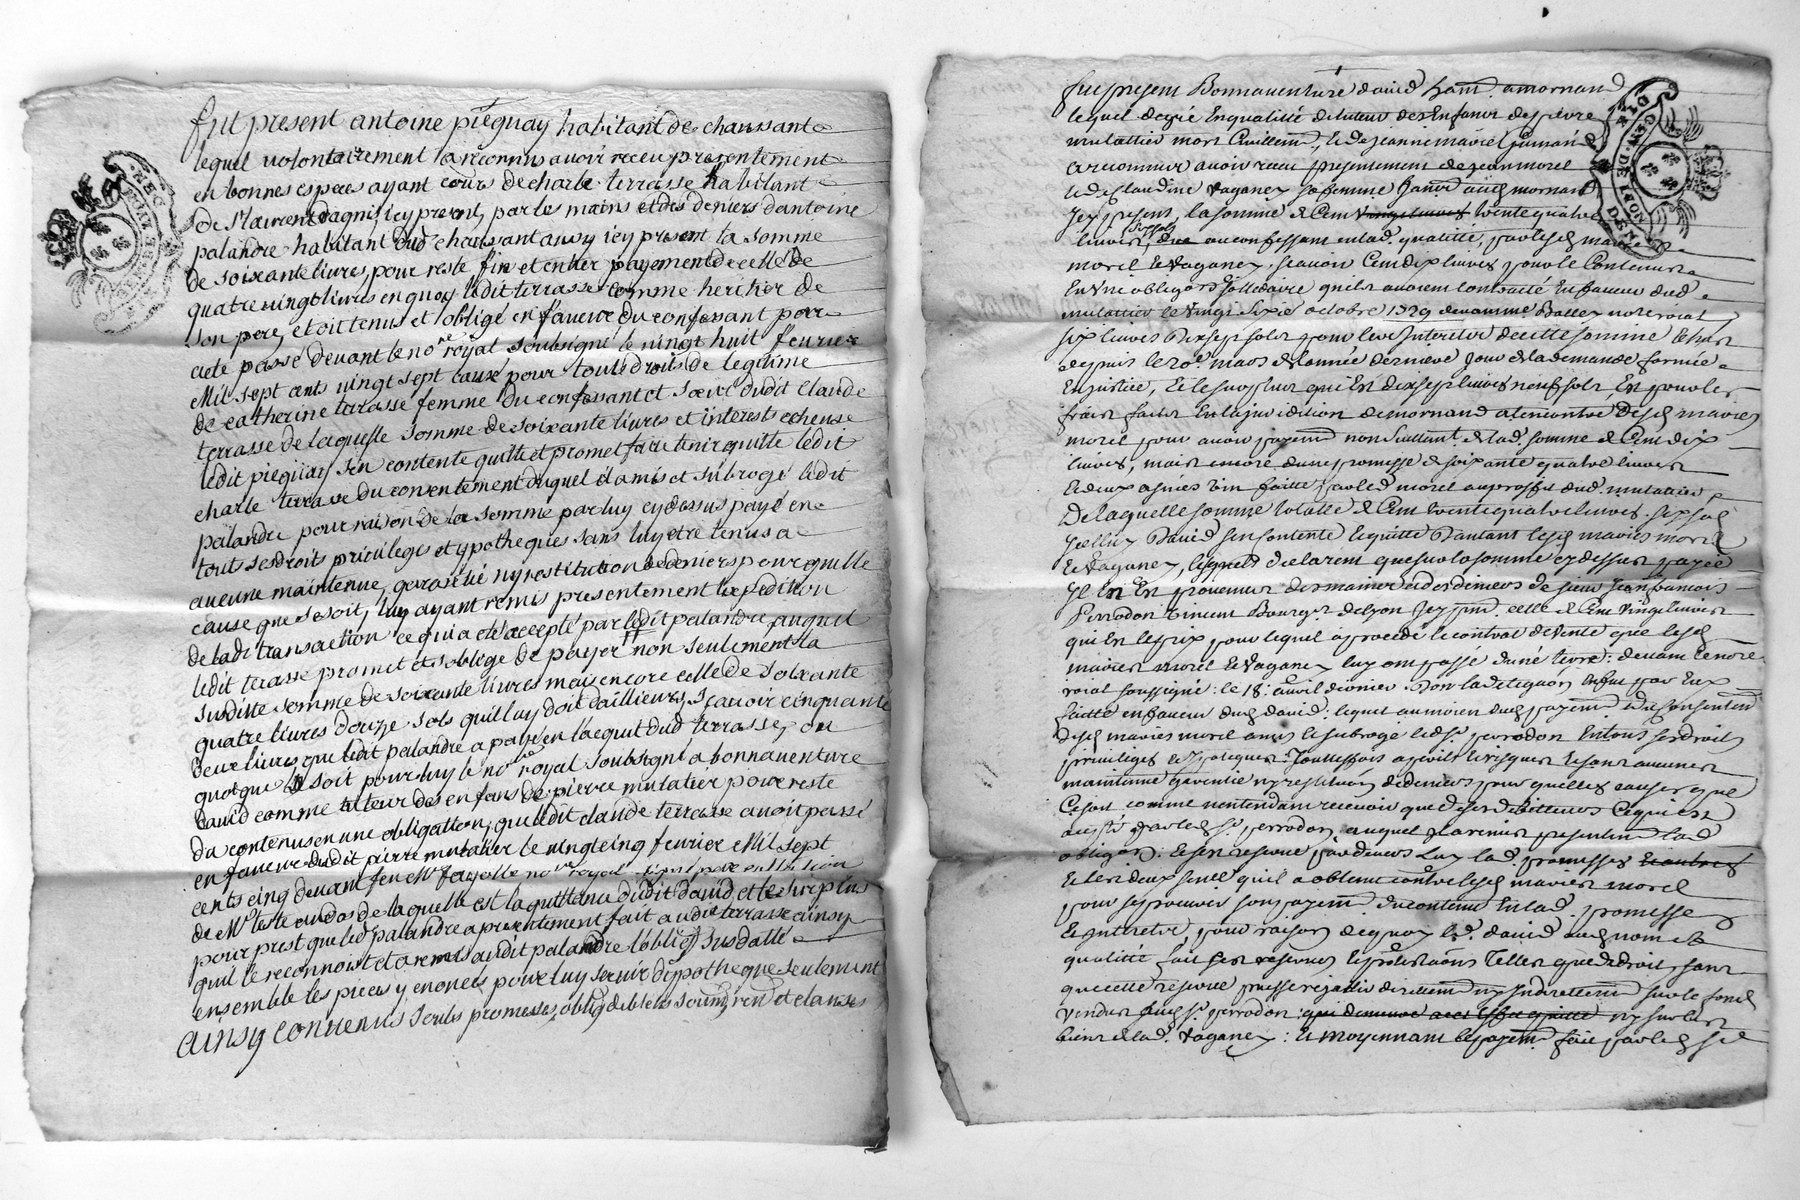 fut present antoine piegnay habitant de chaussant
lequel volontairement a reconnus avoir receu presentement
en bonnes especes ayant cours de charle terrasse habitant
De St laurent dagnis icy present, par les mains et des deniers dantoine
palandre habitant dud chaussant aussy icy present la somme
de soixante livres, pour reste fin et entier payement de celle de
quatre vingt livres en quoy ledit terrasse comme heritier de
son pere, etoit tenus et obligé en faveur du confessant par
acte passé devant le nore royal soubsigné le vingt huit fevrier
Mil sept cents vingt sept causé pour touts droits de legitime
de catherine terrasse femme du confessant et soeur dudit Claude
terrasse de laquelle somme de soixante livres et interests echeus
ledit piegnay s'en contente quitte et promet faire tenir quitte ledit
charle terrasse du consentement duquel il a mis et subrogé ledit
palandre pour raison de la somme par luy cy dessus payé en
tout ses droits privileges et ypotheques sans luy etre tenus a
aucune maintenue, garantie ny restitution de deniers pour quelle
cause que se soit, luy ayant remis presentement lexpedition
de ladt transaction ce qui a eté accepté par ledit palandre auquel
ledit terasse promet et soblige de payer non seulement la
susditte somme de soixante livres mais encore celle de soixante
quatre livres douze sols quil luy doit dallieurs, scavoir cinquante
deux livres que ledit palandre a payé en lacquit dud terrasse, ou
quoique se soit pour luy le nore royal soubsigné a bonnaventure
david comme tuteur des enfans de pierre mulatier pour reste
du contenus en une obligation, que ledit claude terrasse avoit passé
en faveur dudit pierre mulatier le vingt cinq fevrier Mil sept
cents cinq devant feu Me fayolle nore royal
de Me teste au dos de laquelle est la quittance dudit david, et le surplus
pour prest que led palandre a presentement fait audit terrasse ainsy
quil le reconnoist et a remis audit palandre l'oblig susdatté
ensemble les pieces y enoncés pour luy servir dipotheque seulement
ainsy convenus seules promesses, oblig de biens soum, ren et clauses
fut present Bonnaventure david hant a mornand
lequel de gré En qualitté de tuteur des Enfans de pierre
mulattier mort
a reconneu avoir receu presentement de jean morel
et de Claudine vaganey sa femme hans aud mornant
Icy present, la somme de Cent vingt livres trente quatre
livres six sols due au confessant en lad. qualitté, par lesd mariés
morel et vaganey, scavoir Cent dix livres pour le Contenu
En une obligaon sollidaire quils avoient Contracté En faveur dud
mulattier le vingt sixe octobre 1729 devant me Balley nore roial
six livres dix sept sols pour leur Interetz de cette somme echeus
depuis le 20e mars de lannée derniere Jour de la demande formée
En justice, Et le surplus qui Est dix sept livres neuf sols, Est pour les
frais faits En la juridition de mornand a lencontre desd mariés
morel pour avoir payemt non seullemt de lad. somme de Cent dix
livres, mais encore dune promesse de soixante quatre livres
et deux asnées vin faitte par led morel au proffit dud. mulattier
De laquelle somme totalle de Cent trente quatre livres six sols
Icelluy David sen Contente Et quitte dautant lesd mariés morel
et vaganey, lesquels declarent que sur la somme cy dessus payée
Il En Est provenu des mains et des deniers de sieur Jean francois
Perrodon vincent Bourgs de lyon Icy pnt. celle de Cent vingt livres
qui Est le prix pour lequel a procedé le contrat de vente que lesd
mariés morel et vaganey luy ont passé dune terre: devant le nore
roial soussigné: le 18: avril dernier. Don la delegaon Est fut par Eux
faitte en faveur dud david: lequel au moien dud payemt et du consentemt
desd mariés morel a mis et subrogé led sr. perrodon En tous ses droits
privileges et Ypoteques: Touttesfois a perils et risques et sans aucune
maintenue garentie ny restituon de deniers pour quelles causes que
Ce soit comme nentendant recevoir que de ses debitteurs Ce qui est
acepté par led sr. perrodon, auquel
obligaon. Et sen reserve par devers Luy lad. promesses et autres
et les deux sences quil a obtenu contre lesd mariés morel
pour se procurer son payemt. du contenu En lad. promesse
Et Interetz pour raison de quoy led. david aud nom et
qualitté fait ses reserves Et protestaons Telles que de droit, sans
que cette reserve puisse rejallir directemt ny Indirectemt sur le fond
vendus aud sr. perrodon: ny sur les
biens de lad. vaganey: Et moyennant le payemt fait par led sr